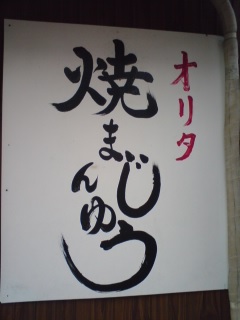 オリタ
焼まんじゅう